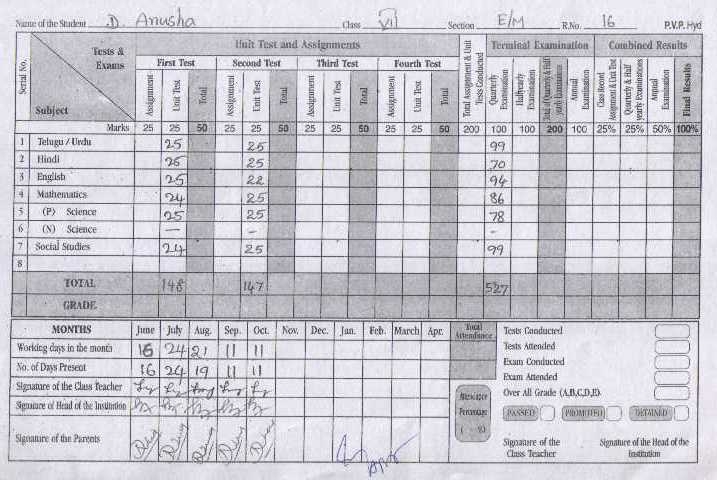 Name of the Student D. Anusha Class VII Section E/M R.No. 16 P.V.P. Hyd
Serial No. Tests & Exams Subject Unit Test and Assignments Total Assignment & Unit Tests Conducted Terminal Examination Combined Results
First Test Second Test Third Test Fourth Test
Assignment Unit Test Total Assignment Unit Test Total Assignment Unit Test Total Assignment Unit Test Total Quarterly Examination Halfyearly Examination Total of Quarterly & Half yearly Examinations Annual Examination Class Record Assignment & Unit Test Quarterly & Half yearly Examinations Annual Examination Final Results
Marks 25 25 50 25 25 50 25 25 50 25 25 50 200 100 100 200 100 25% 25% 50% 100%
1 Telugu / Urdu 25 25 99
2 Hindi 25 25 70
3 English 25 22 94
4 Mathematics 24 25 86
5 (P) Science 25 25 78
6 (N) Science — - -
7 Social Studies 24 25 99
8
TOTAL 148 147 527
GRADE
MONTHS June July Aug. Sep. Oct. Nov. Dec. Jan. Feb. March Apr. Total Attendance
Working days in the month 16 24 21 11 11
No. of Days Present 16 24 19 11 11
Signature of the Class Teacher
Signature of Head of the Institution
Signature of the Parents
Attendance Percentage ( %)
Tests Conducted
Tests Attended
Exam Conducted
Exam Attended
Over All Grade (A,B,C,D,E)
PASSED PROMOTED DETAINED
Signature of the Class Teacher
Signature of the Head of the Institution